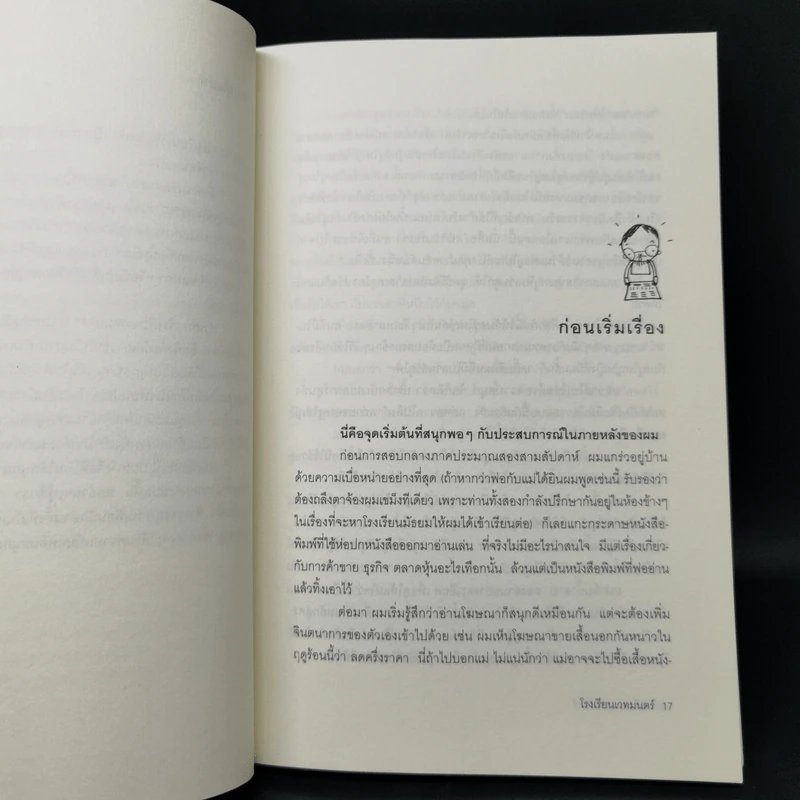 ก่อนเริ่มเรื่อง
นี่คือจุดเริ่มต้นที่สนุกพอๆ กับประสบการณ์ในภายหลังของผม
ก่อนการสอบกลางภาคประมาณสองสามสัปดาห์ ผมแกร่วอยู่บ้าน
ด้วยความเบื่อหน่ายอย่างที่สุด (ถ้าหากว่าพ่อกับแม่ได้ยินผมพูดเช่นนี้ รับรองว่า
ต้องถลึงตาจ้องผมเขม็งทีเดียว เพราะท่านทั้งสองกำลังปรึกษากันอยู่ในห้องข้างๆ
ในเรื่องที่จะหาโรงเรียนมัธยมให้ผมได้เข้าเรียนต่อ) ก็เลยแกะกระดาษหนังสือ-
พิมพ์ที่ใช้ห่อปกหนังสือออกมาอ่านเล่น ที่จริงไม่มีอะไรน่าสนใจ มีแต่เรื่องเกี่ยว-
กับการค้าขาย ธุรกิจ ตลาดหุ้นอะไรเทือกนั้น ล้วนแต่เป็นหนังสือพิมพ์ที่พ่ออ่าน
แล้วทิ้งเอาไว้
ต่อมา ผมเริ่มรู้สึกว่าอ่านโฆษณาก็สนุกดีเหมือนกัน แต่จะต้องเพิ่ม
จินตนาการของตัวเองเข้าไปด้วย เช่น ผมเห็นโฆษณาขายเสื้อนอกกันหนาวใน
ฤดูร้อนนี้ว่า ลดครึ่งราคา นี่ถ้าไปบอกแม่ ไม่แน่นักว่า แม่อาจจะไปซื้อเสื้อหนัง-
โรงเรียนเวทมนตร์ 17